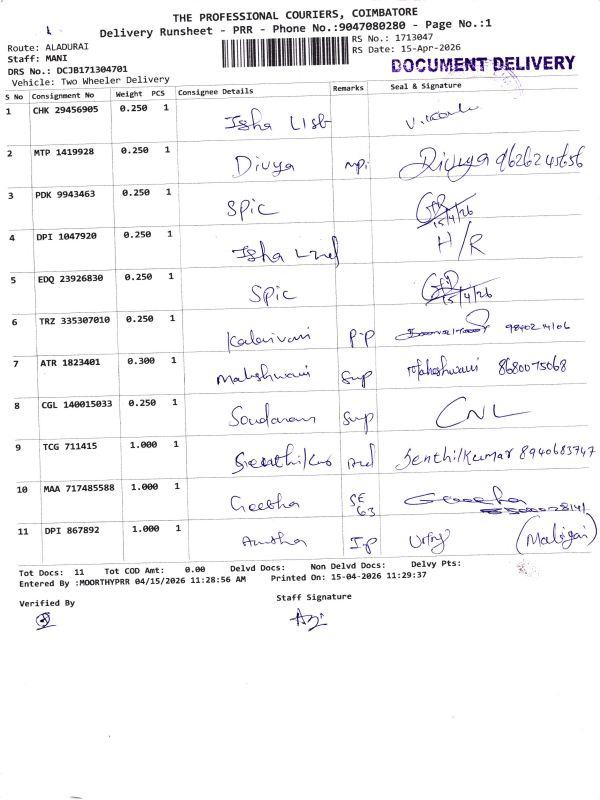 THE PROFESSIONAL COURIERS, COIMBATORE
Delivery Runsheet - PRR - Phone No.:9047080280 - Page No.:1
Route: ALADURAI
Staff: MANI
DRS No.: DCJB171304701
Vehicle: Two Wheeler Delivery
RS No.: 1713047
RS Date: 15-Apr-2026
DOCUMENT DELIVERY
S No Consignment No Weight PCS Consignee Details Remarks Seal & Signature
1 CHK 29456905 0.250 1 Isha
2 MTP 1419928 0.250 1 Divya Divya 9626245656
3 PDK 9943463 0.250 1 Spic 15/4/26
4 DPI 1047920 0.250 1 Isha H/R
5 EDQ 23926830 0.250 1 Spic 15/4/26
6 TRZ 335307010 0.250 1 Kalaivani P-P
7 ATR 1823401 0.300 1 Maheshwari Sup Maheshwari 8680075068
8 CGL 140015033 0.250 1 Sup CNL
9 TCG 711415 1.000 1 Senthilkumar 8940683747
10 MAA 717485588 1.000 1 Geetha SE 63 Geetha
11 DPI 867892 1.000 1 (Maligai)
Tot Docs: 11 Tot COD Amt: 0.00 Delvd Docs: Non Delvd Docs: Delvy Pts:
Entered By :MOORTHYPRR 04/15/2026 11:28:56 AM Printed On: 15-04-2026 11:29:37
Verified By
Staff Signature